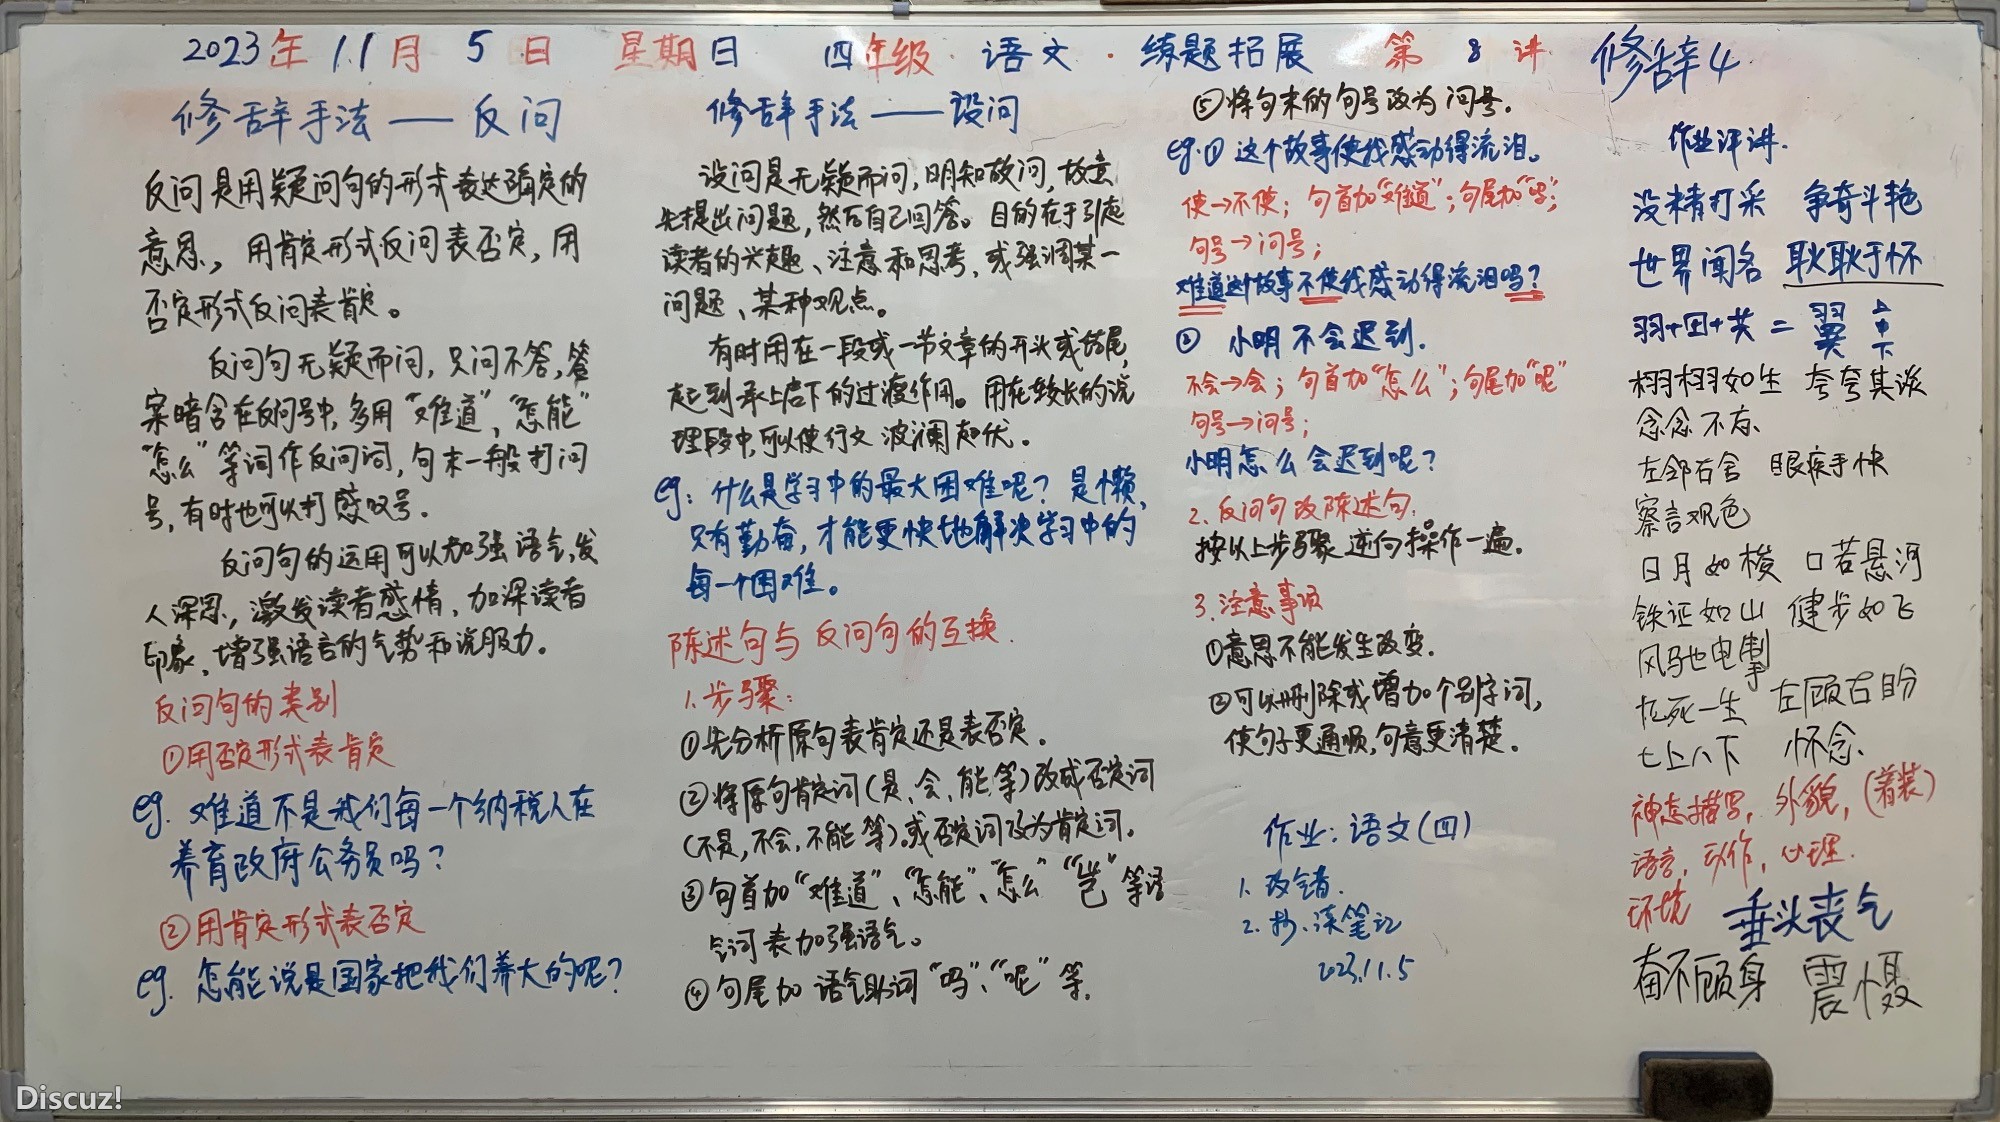 2023年11月5日 星期日 四年级·语文·练题拓展 第8讲 修辞4
修辞手法——反问
反问是用疑问句的形式表达确定的
意思，用肯定形式反问表否定，用
否定形式反问表肯定。
反问句无疑而问，只问不答，答
案暗含在反问号中，多用“难道”，“怎能”
“怎么”等词作反问词，句末一般打问
号，有时也可以打感叹号。
反问句的运用可以加强语气，发
人深思，激发读者感情，加深读者
印象，增强语言的气势和说服力。
反问句的类别
①用否定形式表肯定
eg. 难道不是我们每一个纳税人在
养育政府公务员吗？
②用肯定形式表否定
eg. 怎能说是国家把我们养大的呢？
修辞手法——设问
设问是无疑而问，明知故问，故意
先提出问题，然后自己回答。目的在于引起
读者的兴趣、注意和思考，或强调某一
问题、某种观点。
有时用在一段或一节文章的开头或结尾，
起到承上启下的过渡作用。用在较长的说
理段中，可以使行文波澜起伏。
eg：什么是学习中的最大困难呢？是懒，
只有勤奋，才能更快地解决学习中的
每一个困难。
陈述句与反问句的互换.
1.步骤：
①先分析原句表肯定还是表否定。
②将原句肯定词（是、会、能等）改成否定词
（不是，不会，不能等）。或否定词改为肯定词。
③句首加“难道”、“怎能”、“怎么”“岂”等语
气词表加强语气。
④句尾加语气助词“吗”、“呢”等.
⑤将句末的句号改为问号.
eg.①这个故事使我感动得流泪。
使→不使；句首加“难道”；句尾加“吗”；
句号→问号；
难道这个故事不使我感动得流泪吗？
②小明不会迟到.
不会→会；句首加“怎么”；句尾加“呢”
句号→问号；
小明怎么会迟到呢？
2.反问句改陈述句.
按以上步骤逆向操作一遍.
3.注意事项
①意思不能发生改变.
②可以删除或增加个别字词，
使句子更通顺，句意更清楚.
作业：语文（四）
1.改错.
2.抄、读笔记
2023.11.5
作业评讲.
没精打采 争奇斗艳
世界闻名 耿耿于怀
羽+田+共=翼 上中下
栩栩如生 夸夸其谈
念念不忘
左邻右舍 眼疾手快
察言观色
日月如梭 口若悬河
铁证如山 健步如飞
风驰电掣
九死一生 左顾右盼
七上八下 怀念.
神态描写，外貌，（着装）
语言，动作，心理.
环境 垂头丧气
奋不顾身 震慑
Discuz!